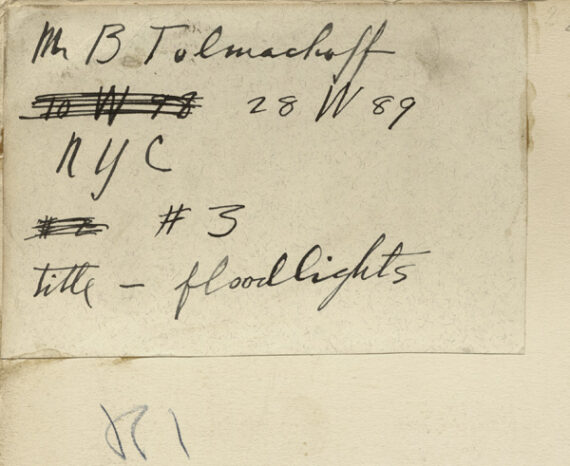 Mr B Tolmachoff
10 W 98 28 W 89
NYC
#2 #3
title – floodlights